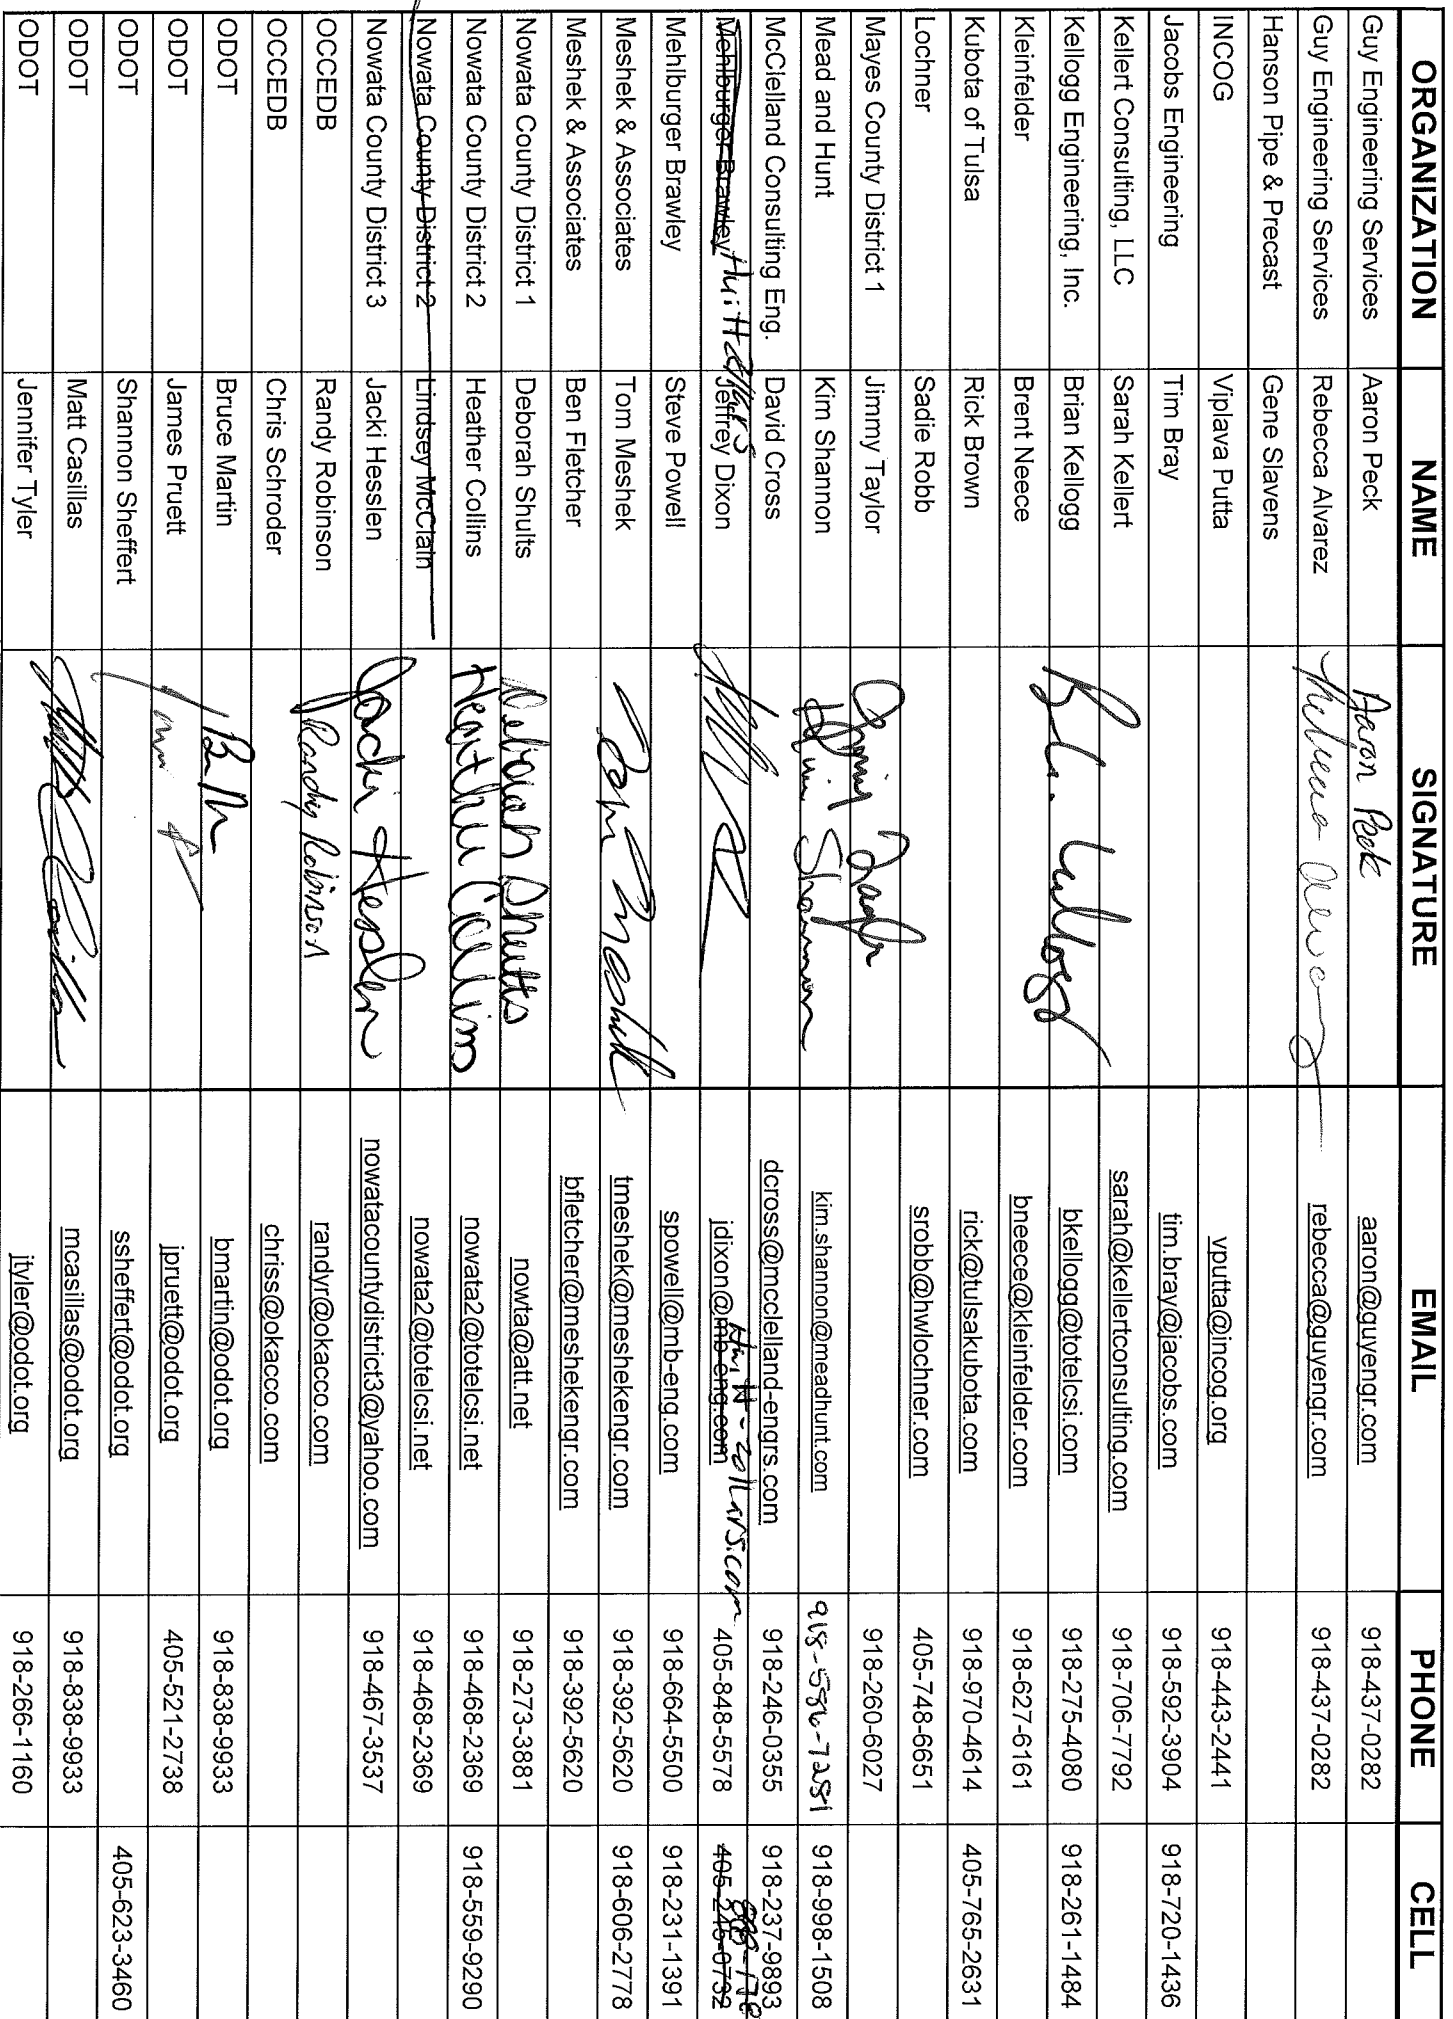 ORGANIZATION NAME SIGNATURE EMAIL PHONE CELL
Guy Engineering Services Aaron Peck Aaron Peck aaron@guyengr.com 918-437-0282
Guy Engineering Services Rebecca Alvarez rebecca@guyengr.com 918-437-0282
Hanson Pipe & Precast Gene Slavens
INCOG Viplava Putta vputta@incog.org 918-443-2441
Jacobs Engineering Tim Bray tim.bray@jacobs.com 918-592-3904 918-720-1436
Kellert Consulting, LLC Sarah Kellert sarah@kellertconsulting.com 918-706-7792
Kellogg Engineering, Inc. Brian Kellogg bkellogg@totelcsi.com 918-275-4080 918-261-1484
Kleinfelder Brent Neece bneece@kleinfelder.com 918-627-6161
Kubota of Tulsa Rick Brown rick@tulsakubota.com 918-970-4614 405-765-2631
Lochner Sadie Robb srobb@hwlochner.com 405-748-6651
Mayes County District 1 Jimmy Taylor 918-260-6027
Mead and Hunt Kim Shannon Kim Shannon kim.shannon@meadhunt.com 918-586-7281 918-998-1508
McClelland Consulting Eng. David Cross dcross@mcclelland-engrs.com 918-246-0355 918-237-9893
Mehlburger Brawley Huitt Zollars Jeffrey Dixon jdixon@mb-eng.com Huitt-zollars.com 405-848-5578
Mehlburger Brawley Steve Powell spowell@mb-eng.com 918-664-5500 918-231-1391
Meshek & Associates Tom Meshek Tom Meshek tmeshek@meshekengr.com 918-392-5620 918-606-2778
Meshek & Associates Ben Fletcher bfletcher@meshekengr.com 918-392-5620
Nowata County District 1 Deborah Shults Deborah Shults nowta@att.net 918-273-3881
Nowata County District 2 Heather Collins Heather Collins nowata2@totelcsi.net 918-468-2369 918-559-9290
Nowata County District 2 Lindsey McClain nowata2@totelcsi.net 918-468-2369
Nowata County District 3 Jacki Hesslen Jacki Hesslen nowatacountydistrict3@yahoo.com 918-467-3537
OCCEDB Randy Robinson Randy Robinson randyr@okacco.com
OCCEDB Chris Schroder chriss@okacco.com
ODOT Bruce Martin bmartin@odot.org 918-838-9933
ODOT James Pruett jpruett@odot.org 405-521-2738
ODOT Shannon Sheffert ssheffert@odot.org 405-623-3460
ODOT Matt Casillas mcasillas@odot.org 918-838-9933
ODOT Jennifer Tyler jtyler@odot.org 918-266-1160